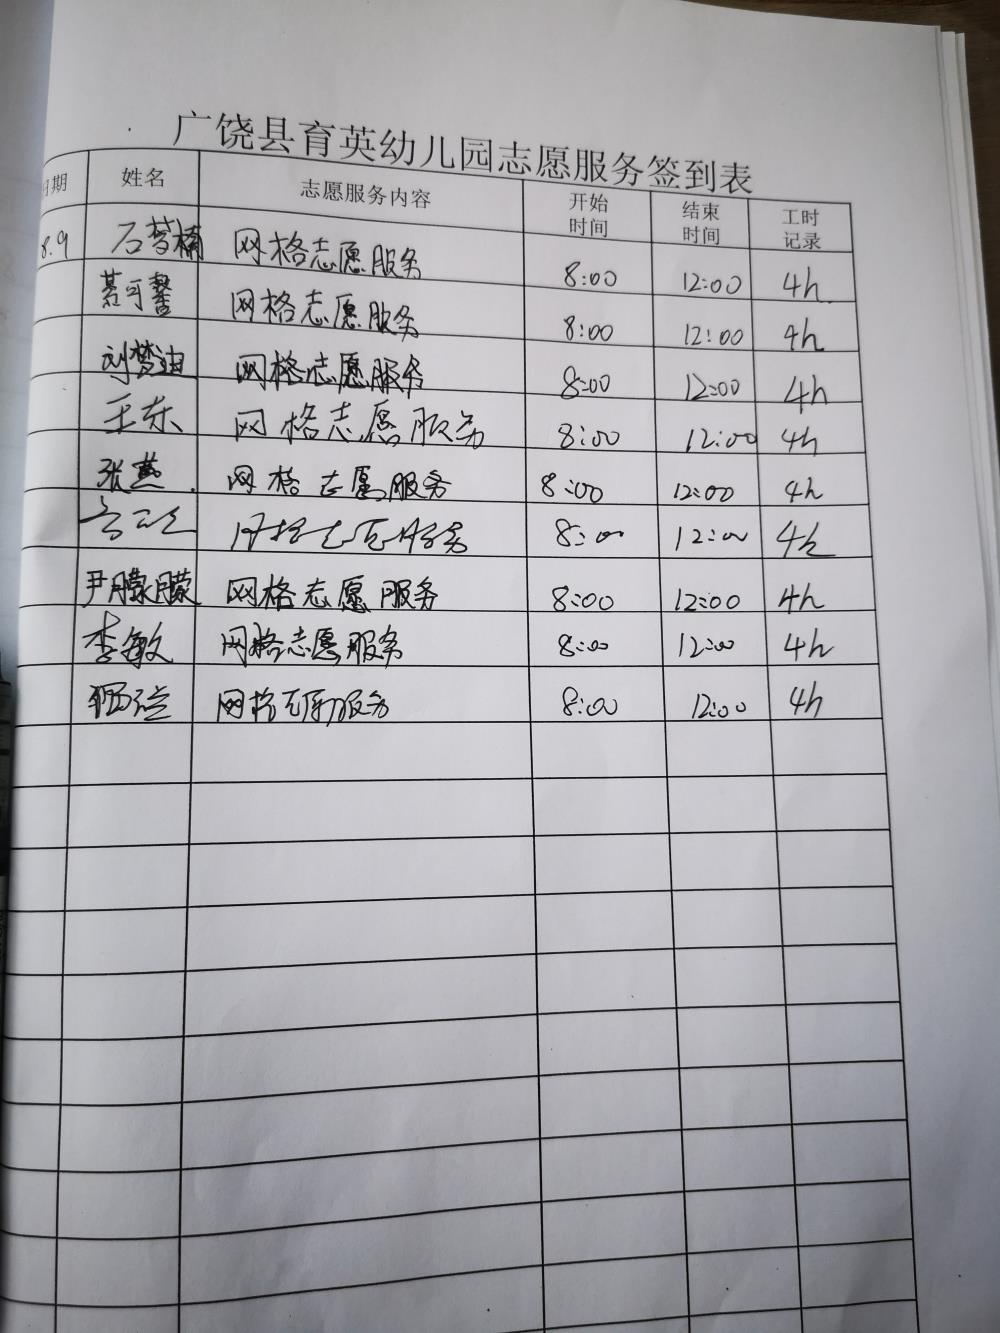 广饶县育英幼儿园志愿服务签到表
日期 姓名 志愿服务内容 开始时间 结束时间 工时记录
8.9 石梦楠 网格志愿服务 8:00 12:00 4h
綦可馨 网格志愿服务 8:00 12:00 4h
刘梦迪 网格志愿服务 8:00 12:00 4h
王东 网格志愿服务 8:00 12:00 4h
张燕 网格志愿服务 8:00 12:00 4h
网格志愿服务 8:00 12:00 4h
尹朦朦 网格志愿服务 8:00 12:00 4h
李敏 网格志愿服务 8:00 12:00 4h
网格 服务 8:00 12:00 4h